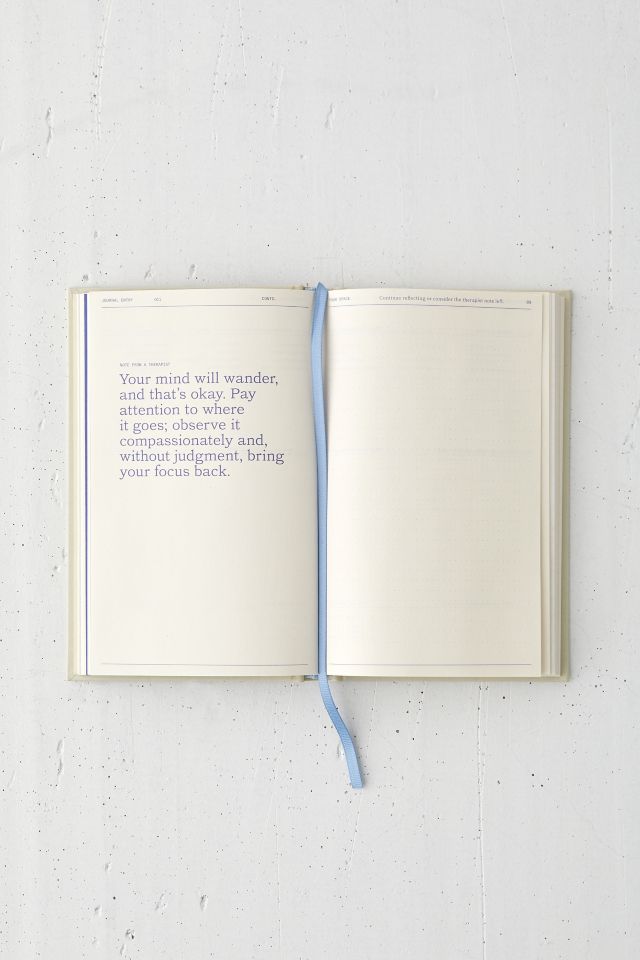 JOURNAL ENTRY 001 CONTD.
NOTE FROM A THERAPIST
Your mind will wander,
and that's okay. Pay
attention to where
it goes; observe it
compassionately and,
without judgment, bring
your focus back.
SPACE Continue reflecting or consider the therapist note left.